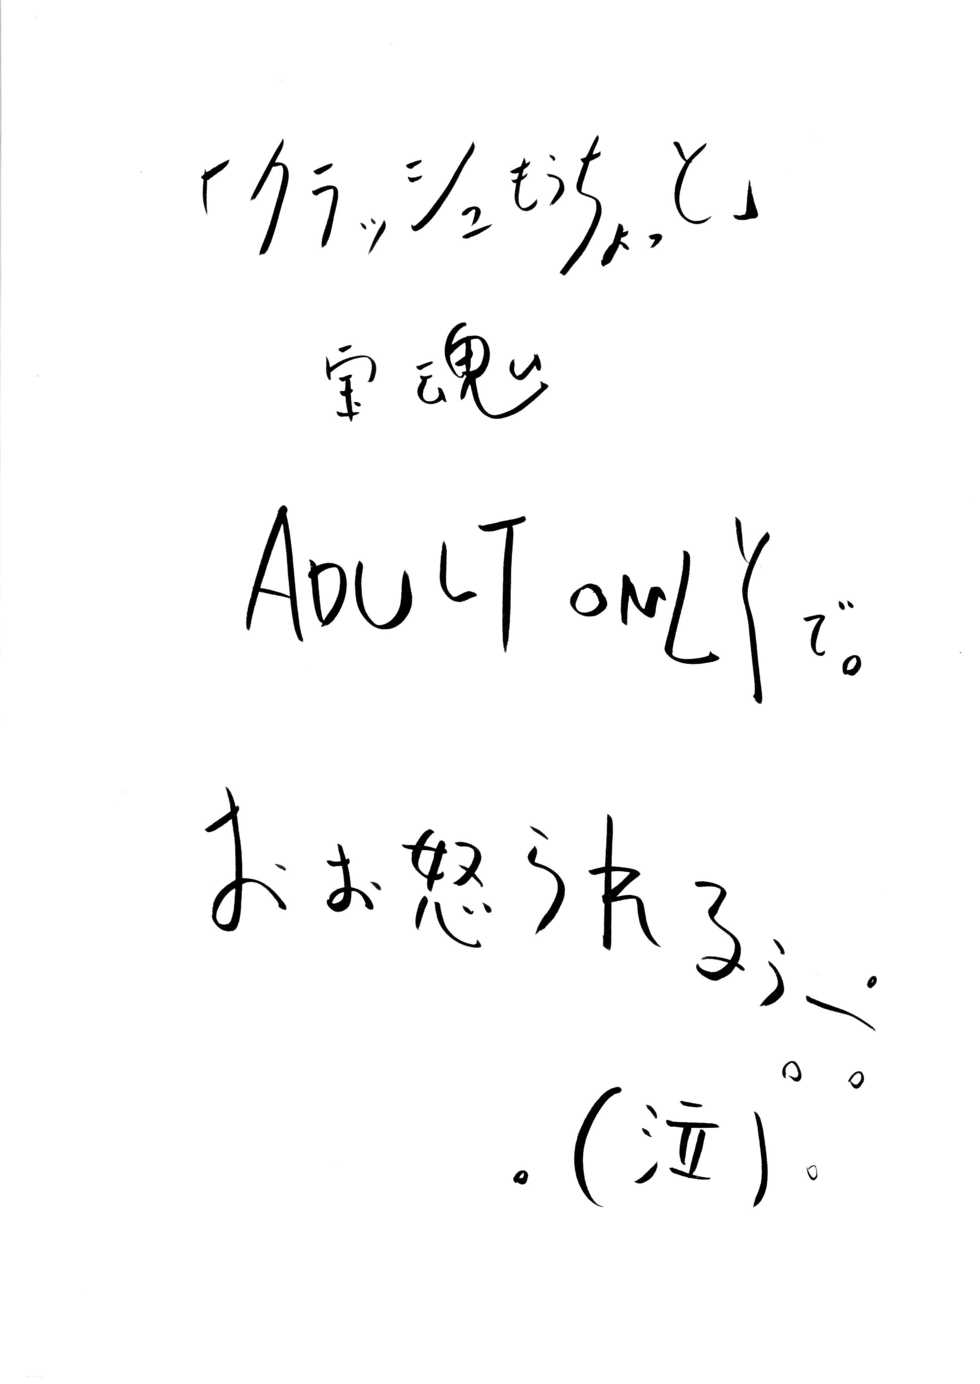 「クラッシュもうちょっと」
宝魂
ADULT ONLYで。
おぉ怒られるぅ～。
。。
.(泣)。